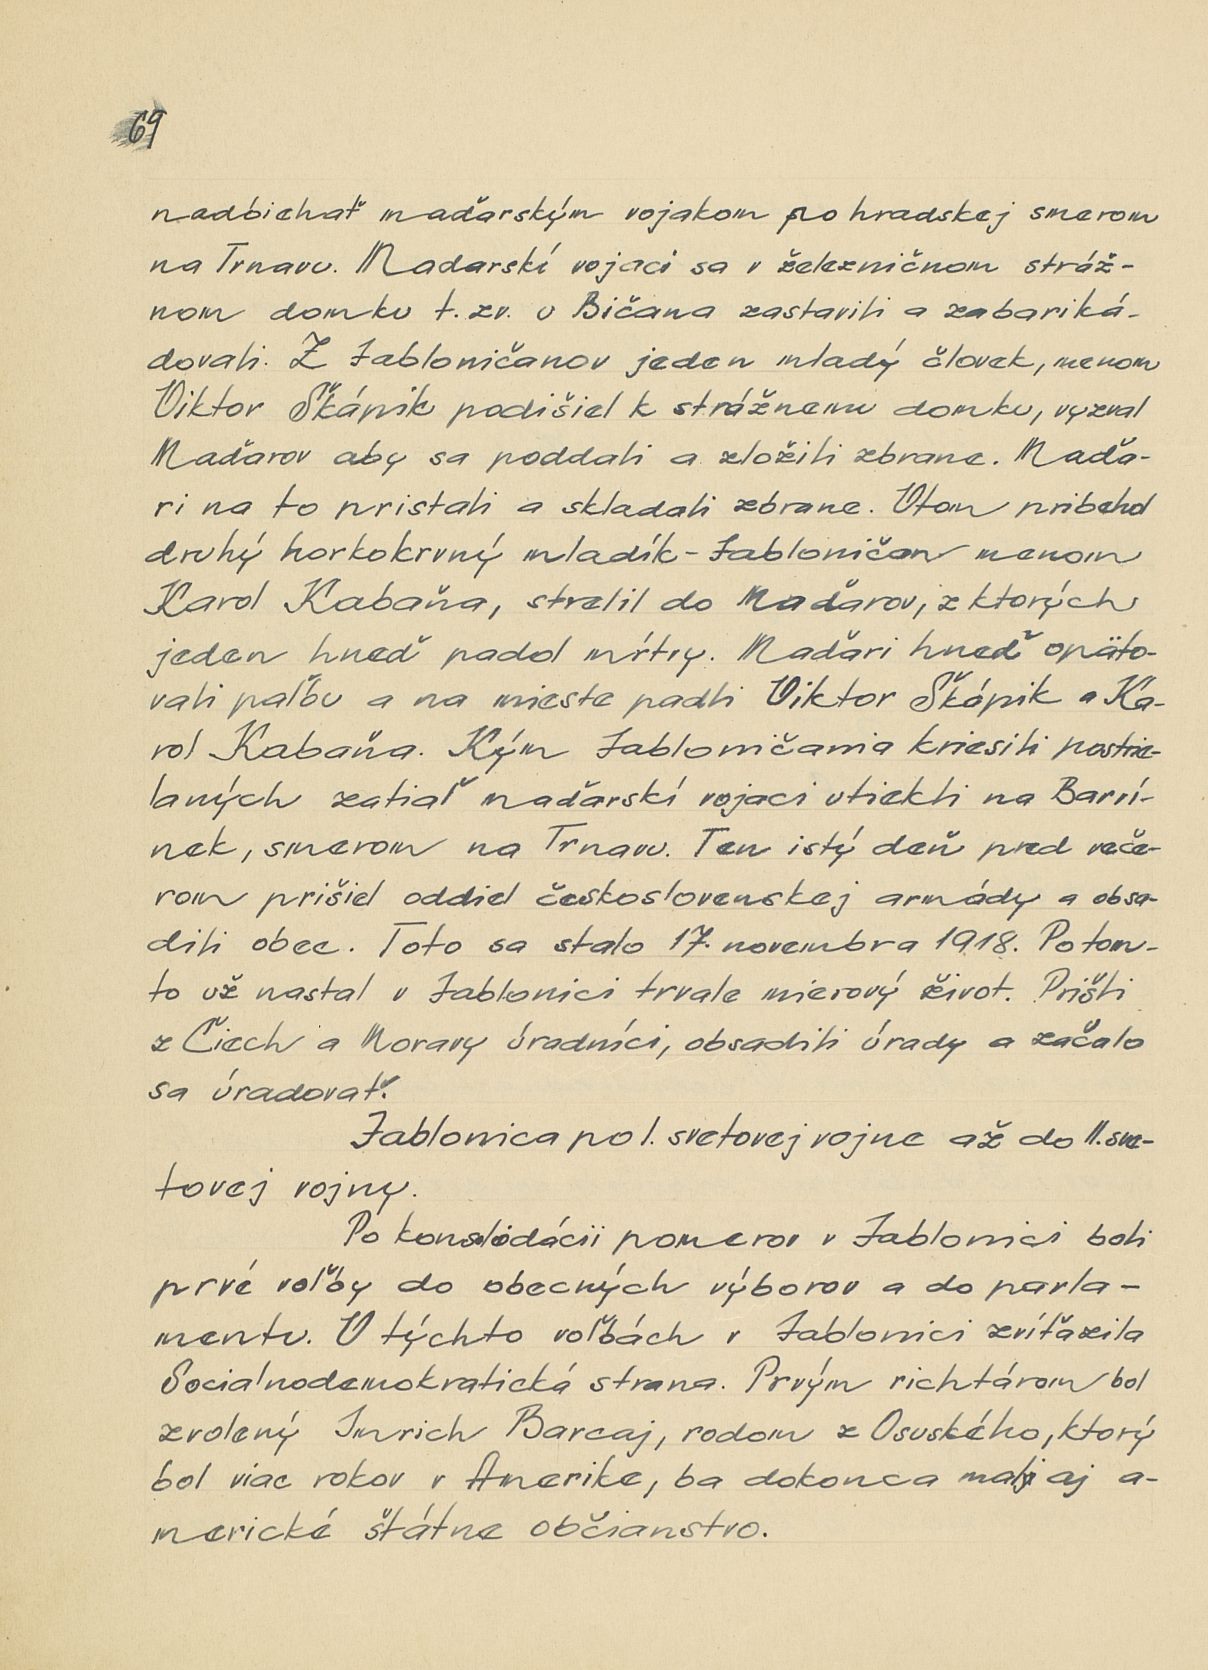 69
nadbiehať maďarským vojakom po hradskej smerom
na Trnavu. Madarskí vojaci sa v železničnom stráž-
nom domku t. zv. u Bičana zastavili a zabariká-
dovali. Z Jabloničanov jeden mladý človek, menom
Viktor Škápik podišiel k strážnemu domku, vyzval
Maďarov aby sa poddali a zložili zbrane. Maďa-
ri na to pristali a skladali zbrane. Vtom pribehol
druhý horkokrvný mladík - Jabloničan menom
Karol Kabaňa, strelil do Maďarov, z ktorých
jeden hneď padol mŕtvy. Maďari hneď opäto-
vali paľbu a na mieste padli Viktor Škápik a Ka-
rol Kabaňa. Kým Jabloničania kriesili postrie-
laných zatiaľ maďarskí vojaci utiekli na Barví-
nek, smerom na Trnavu. Ten istý deň pred veče-
rom prišiel oddiel československej armády a obsa-
dili obec. Toto sa stalo 17. novembra 1918. Potom-
to už nastal v Jablonici trvale mierový život. Prišli
z Čiech a Moravy úradníci, obsadili úrady a začalo
sa úradovať.
Jablonica po I. svetovej vojne až do II. sve-
tovej vojny.
Po konsolidácii pomerov v Jablonici boli
prvé voľby do obecných výborov a do parla-
mentu. V týchto voľbách v Jablonici zvíťazila
Socialnodemokratická strana. Prvým richtárom bol
zvolený Imrich Barcaj, rodom z Osuského, ktorý
bol viac rokov v Amerike, ba dokonca mal aj a-
merické štátne občianstvo.